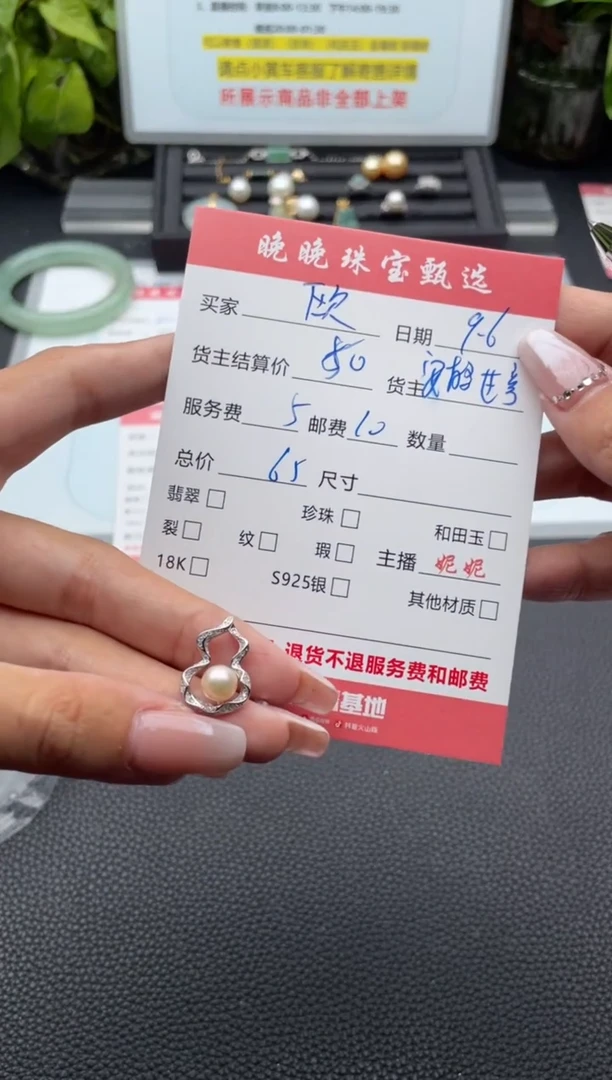 请点小黄车客服了解寄携详情
所展示商品非全部上架
晚晚珠宝甄选
买家 欧 日期 9-6
货主结算价 50 货主
服务费 5 邮费 10 数量
总价 65 尺寸
翡翠 珍珠 和田玉
裂 纹 瑕 主播 妮妮
18K S925银 其他材质
退货不退服务费和邮费
基地